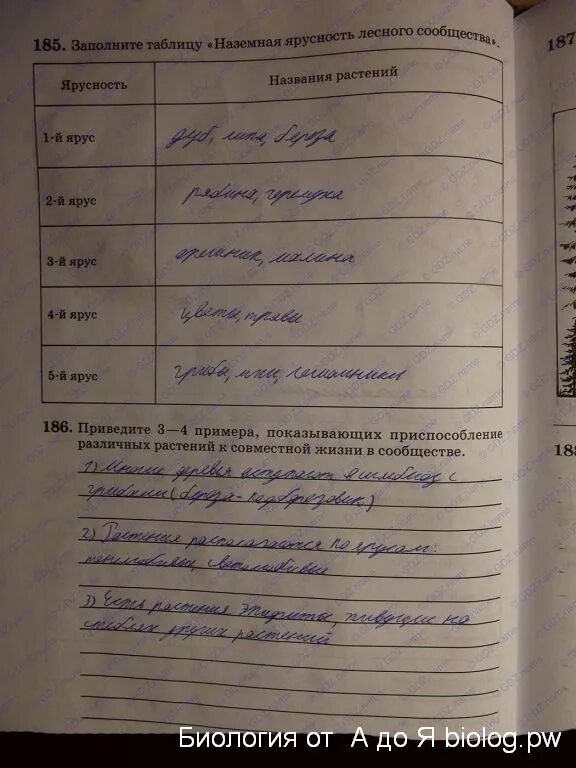 185. Заполните таблицу «Наземная ярусность лесного сообщества».
Ярусность Названия растений
1-й ярус дуб, липа, береза
2-й ярус рябина, черемуха
3-й ярус орешник, малина
4-й ярус цветы, травы
5-й ярус грибы, мхи, лишайники
186. Приведите 3—4 примера, показывающих приспособление
различных растений к совместной жизни в сообществе.
1) Многие деревья вступают в симбиоз с
грибами (береза - подберезовик)
2) Растения располагаются по ярусам:
тенелюбивые, светолюбивые
3) Есть растения эпифиты, живущие на
стеблях других растений
187
188
© GDZ.name
Биология от А до Я biolog.pw